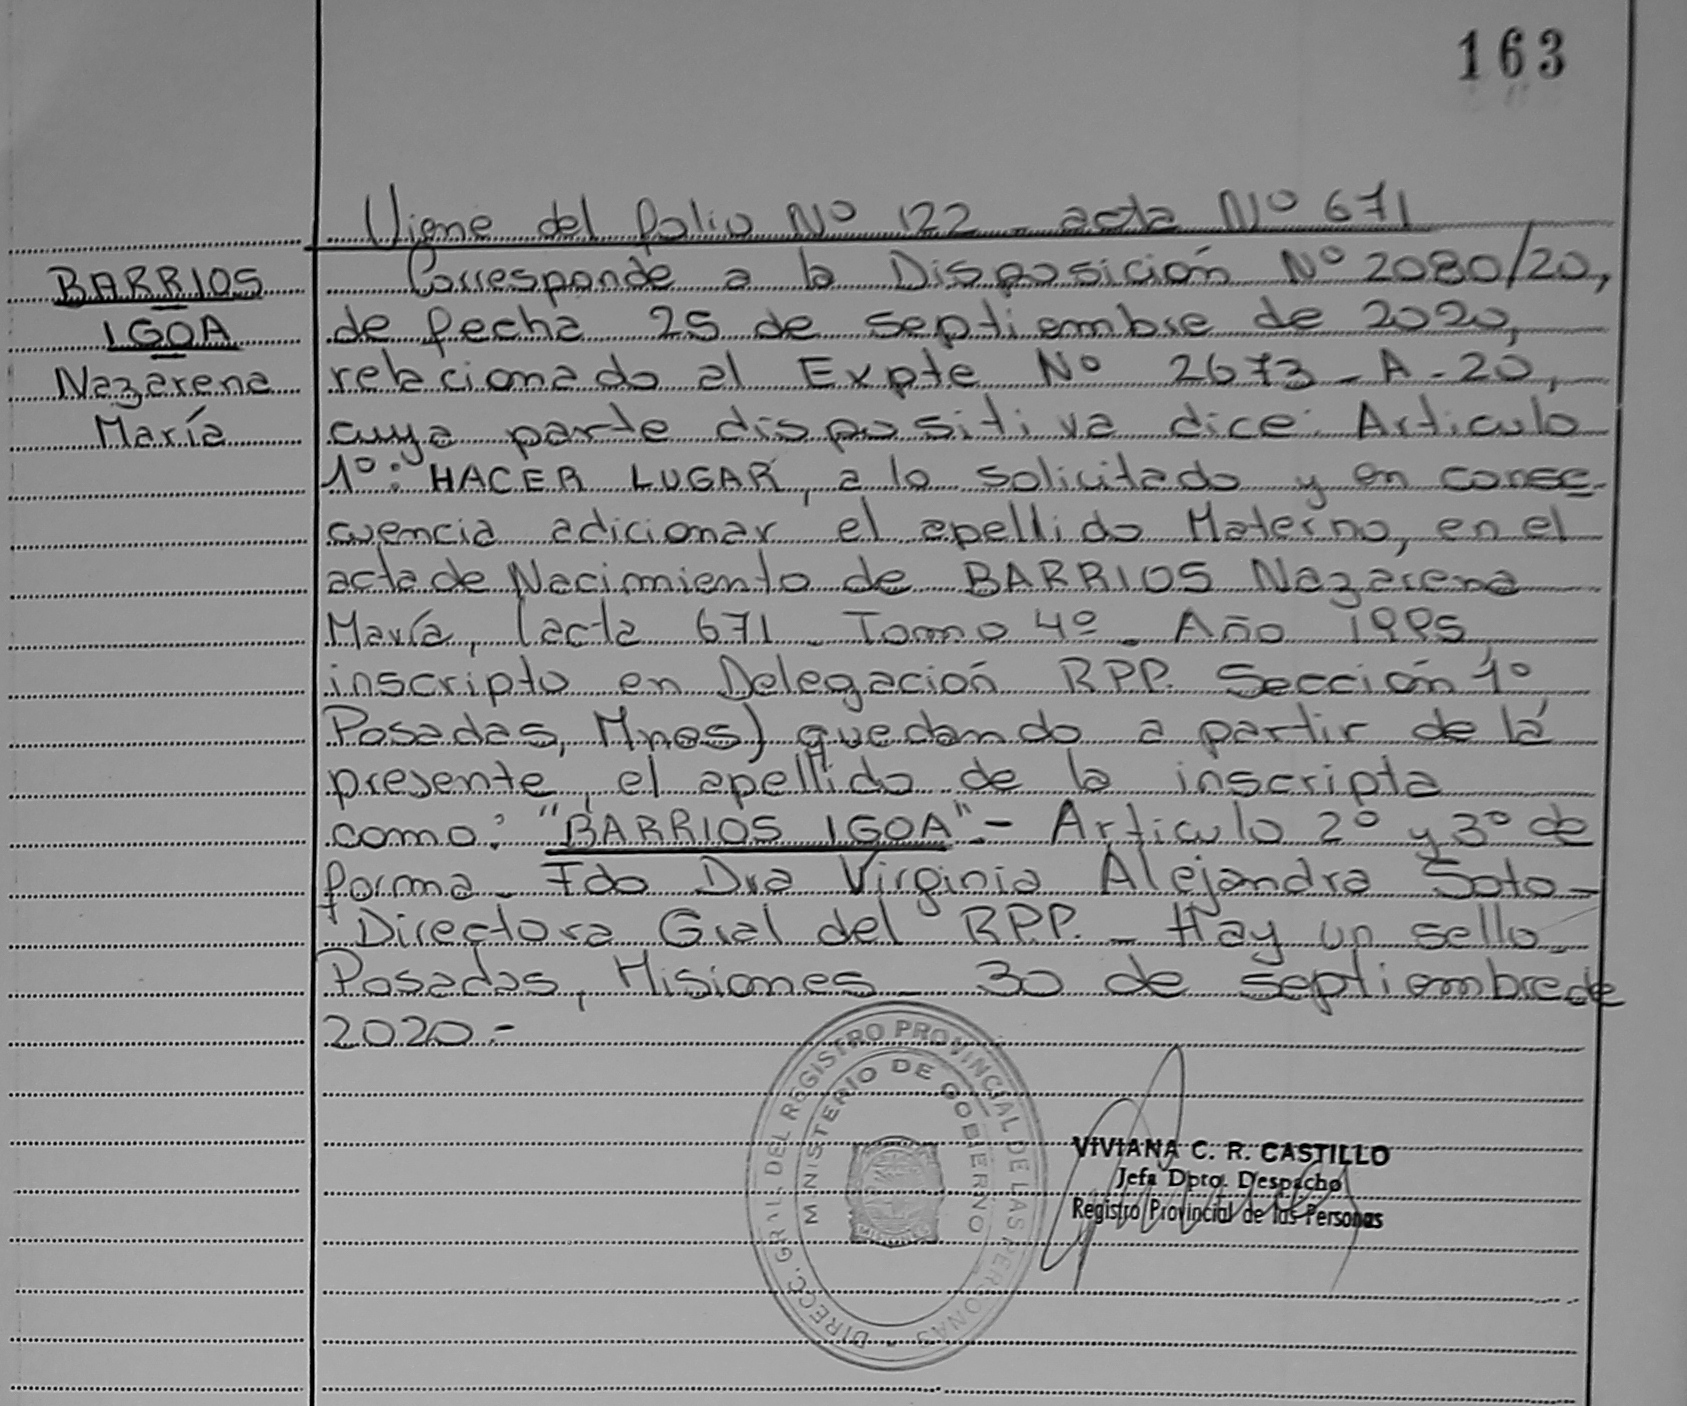 163
Viene del folio Nº 122 - acta Nº 671
BARRIOS
IGOA
Nazarena
María
Corresponde a la Disposición Nº 2080/20,
de fecha 25 de septiembre de 2020,
relacionado al Expte Nº 2673 - A - 20,
cuya parte dispositiva dice: Articulo
1º: HACER LUGAR, a lo solicitado y en conse-
cuencia adicionar el apellido Materno, en el
acta de Nacimiento de BARRIOS Nazarena
María, (acta 671 - Tomo 4º - Año 1995
inscripto en Delegación RPP. Sección 1º
Posadas, Mnes) quedando a partir de la
presente, el apellido de la inscripta
como: "BARRIOS IGOA" - Articulo 2º y 3º de
forma - Fdo Dra Virginia Alejandra Soto -
Directora Gral del R.P.P. - Hay un sello -
Posadas, Misiones - 30 de septiembre de
2020.-
DIRECC. GRAL. DEL REGISTRO PROVINCIAL DE LAS PERSONAS
MINISTERIO DE GOBIERNO
VIVIANA C. R. CASTILLO
Jefa Dpto. Despacho
Registro Provincial de las Personas